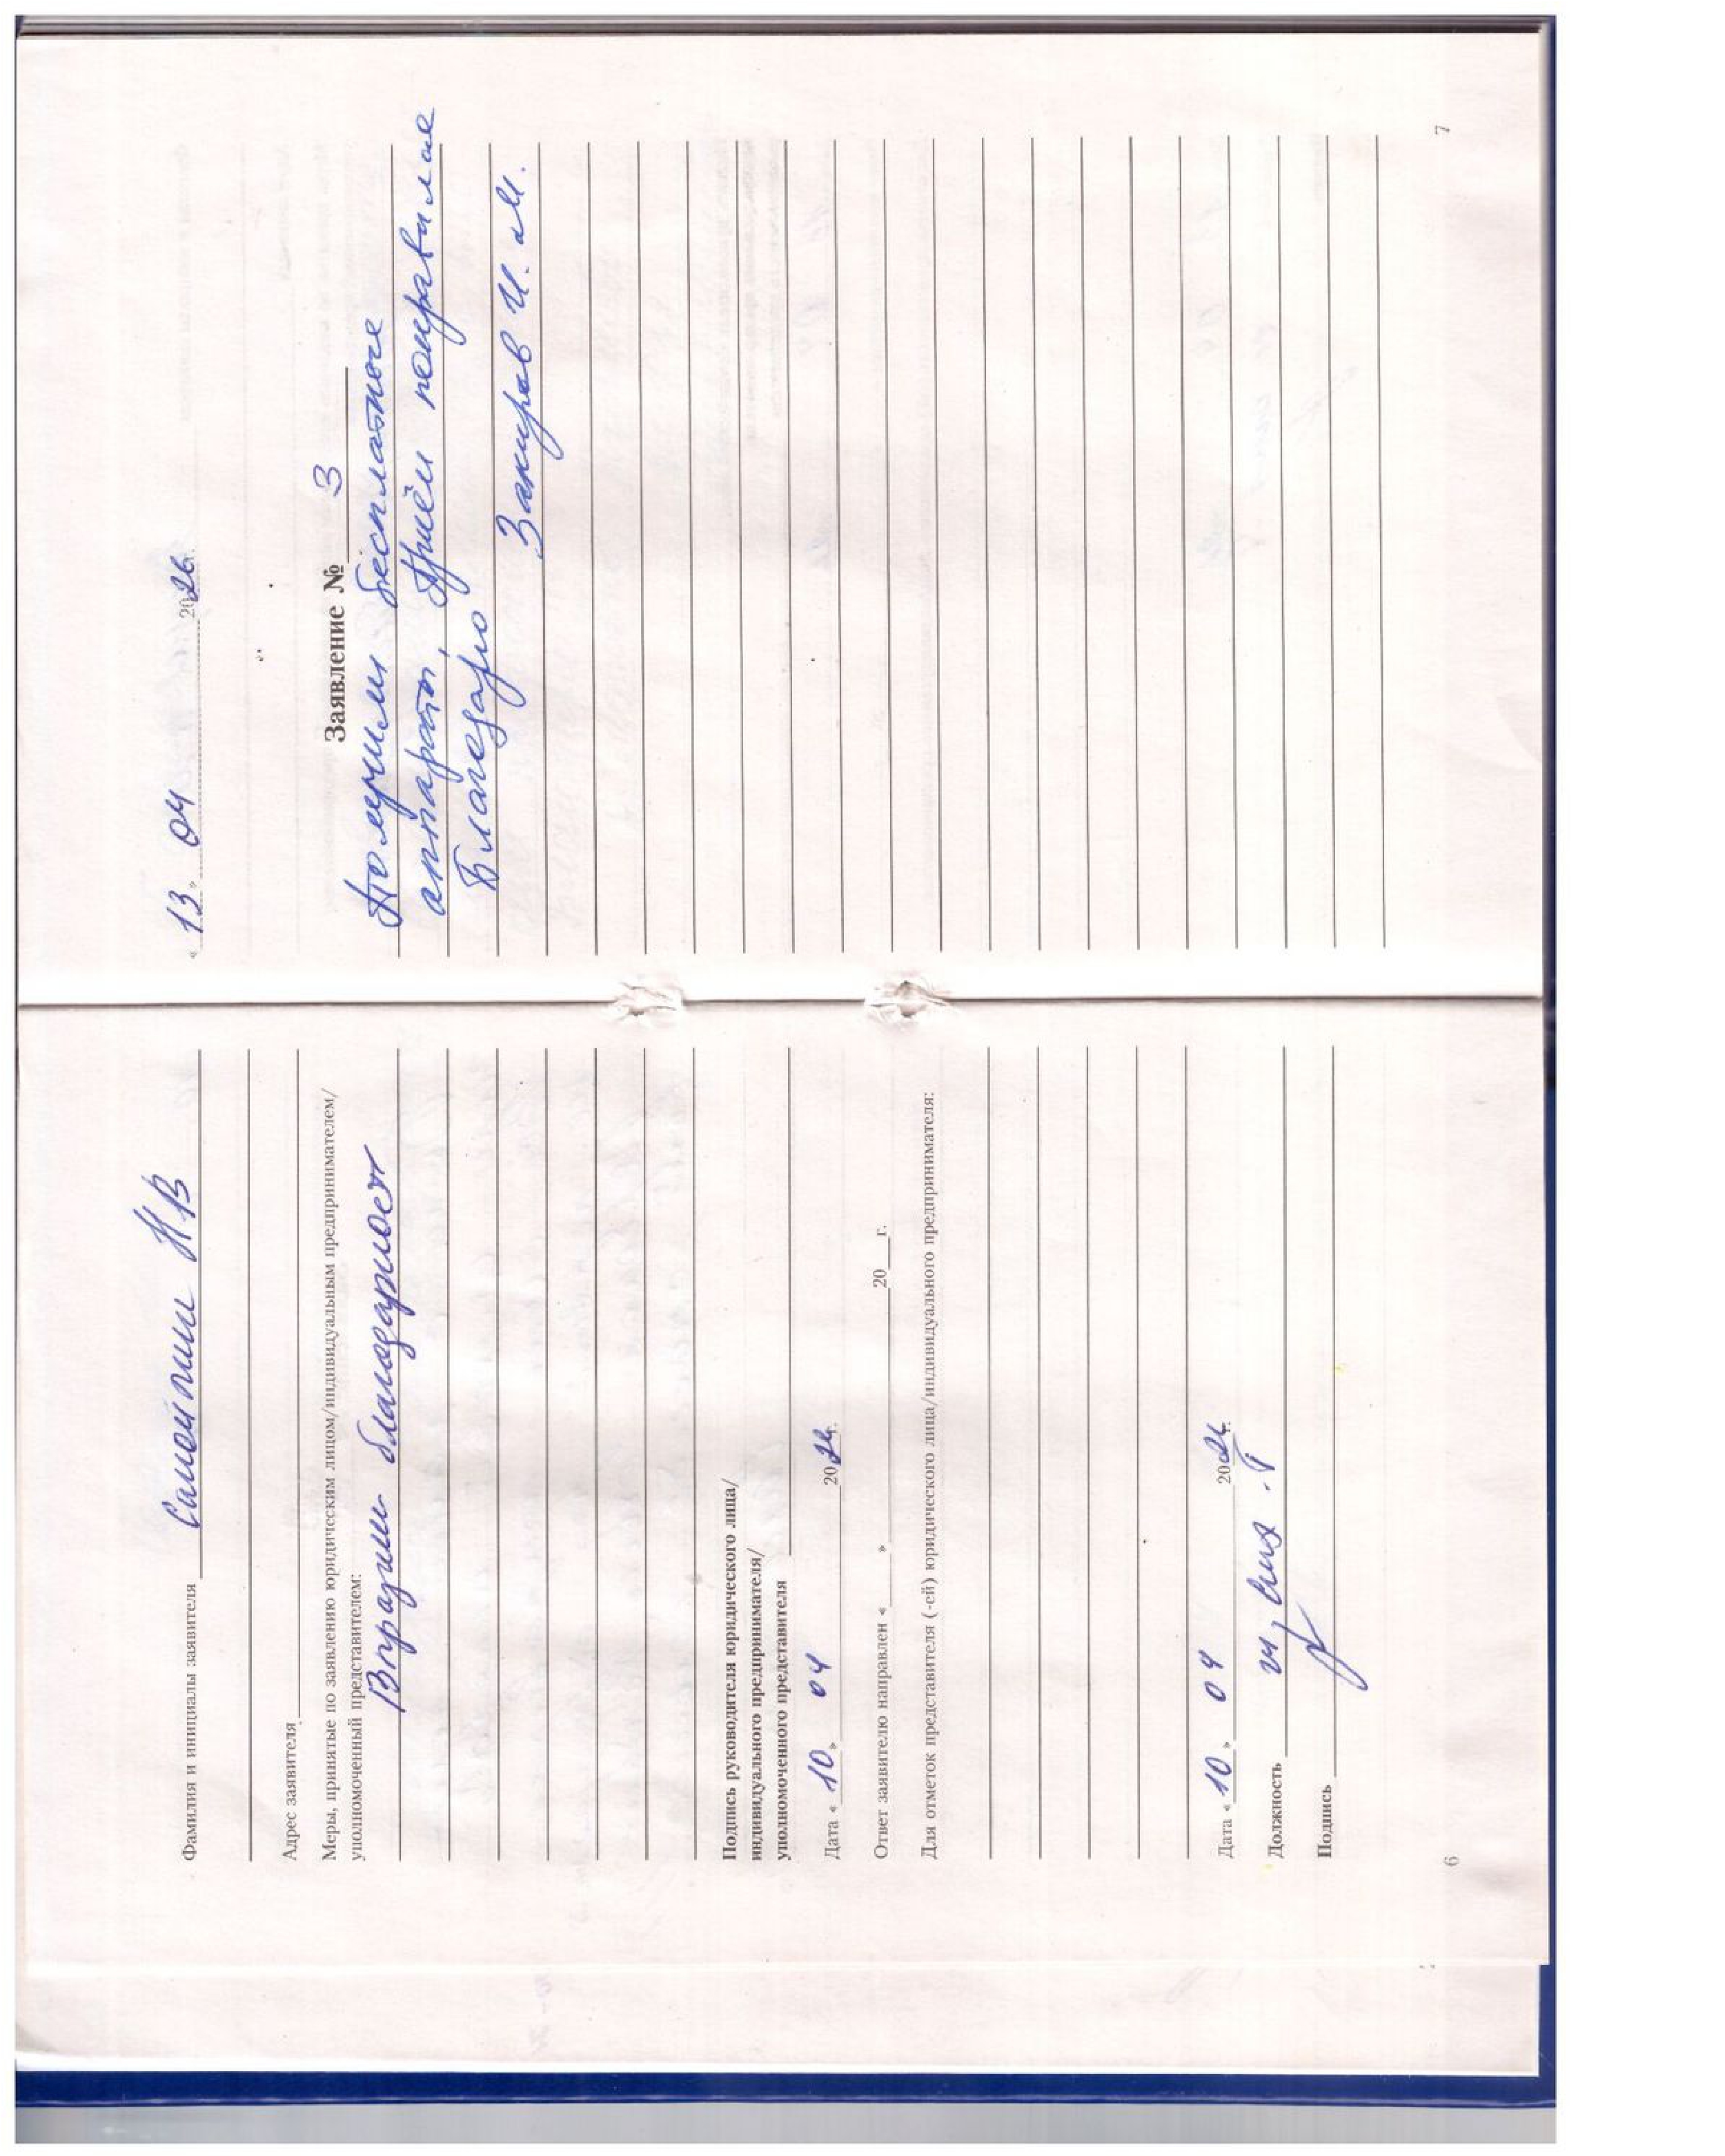 Фамилия и инициалы заявителя
Адрес заявителя
Меры, принятые по заявлению юридическим лицом/индивидуальным предпринимателем/
уполномоченный представителем:
благодарност
Подпись руководителя юридического лица/
индивидуального предпринимателя/
уполномоченного представителя
Дата «10» 04 20
Ответ заявителю направлен « » 20 г.
Для отметок представителя (-ей) юридического лица/индивидуального предпринимателя:
Дата «10» 04 20
Должность
Подпись
6
«13» 04 2026г.
Заявление № 3
Получили бесплатные
аппараты, Приём понравился
Благодарю
Закиров И. М.
7